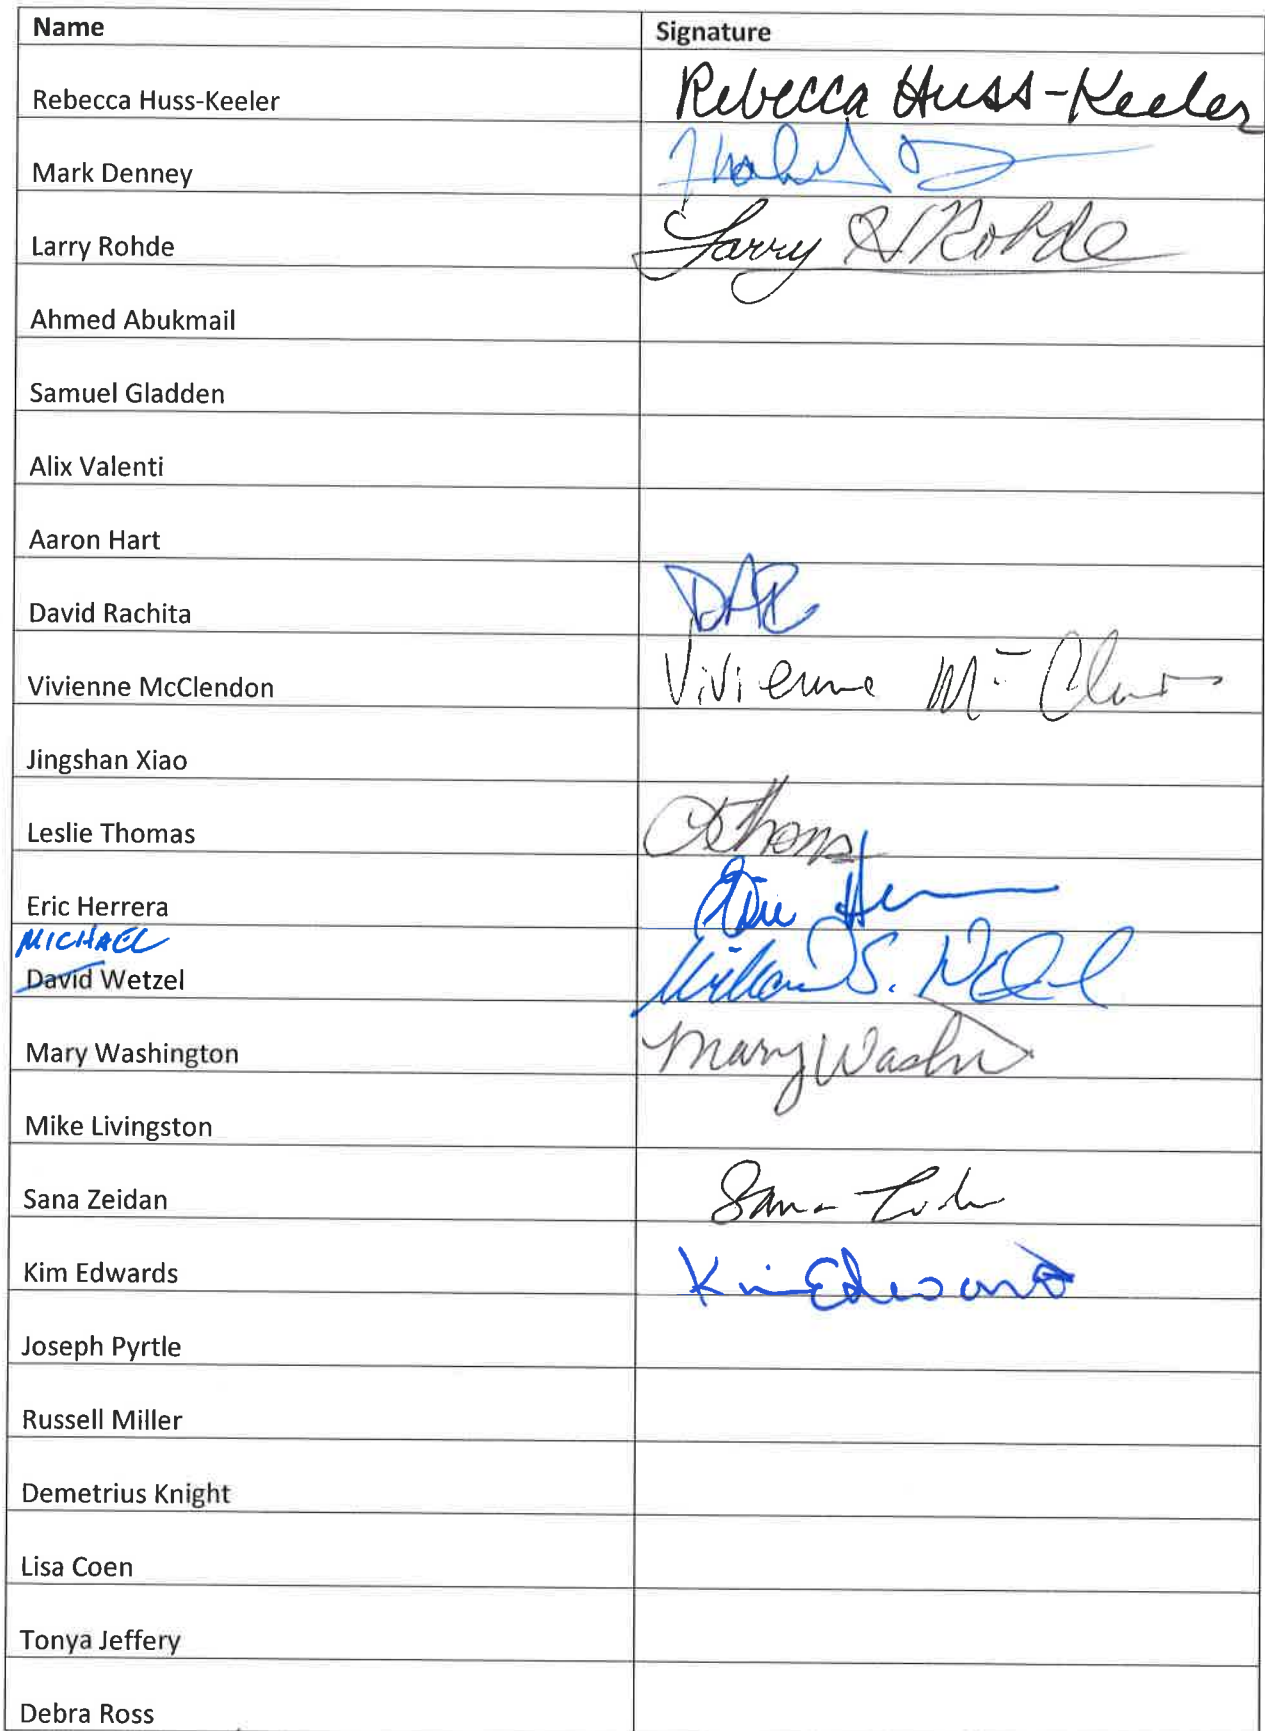 Name Signature
Rebecca Huss-Keeler Rebecca Huss-Keeler
Mark Denney
Larry Rohde Larry Rohde
Ahmed Abukmail
Samuel Gladden
Alix Valenti
Aaron Hart
David Rachita DAR
Vivienne McClendon Vivienne Mc
Jingshan Xiao
Leslie Thomas
Eric Herrera
MICHAEL
David Wetzel William S.
Mary Washington Mary
Mike Livingston
Sana Zeidan Sana
Kim Edwards Kim Edwards
Joseph Pyrtle
Russell Miller
Demetrius Knight
Lisa Coen
Tonya Jeffery
Debra Ross